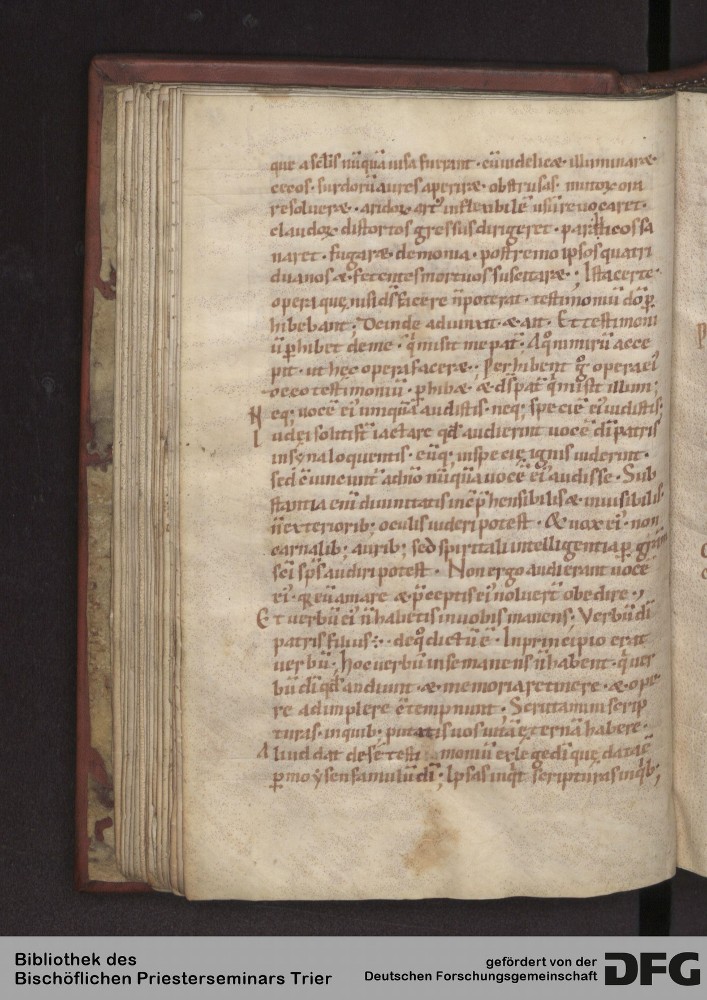 que a sclis nūquā uisa fuerant · cū uidelicæ · illuminaræ ·
cecos · surdorū aures aperiræ · obstrusas · mutoꝝ ora
resolueræ · aridoꝝ art᷒ inflexibile usu reuocaret ·
claudoꝝ distortos gressus dirigeret · paraliticos sa
naret · fugaræ demonia · postremo ipsos quatri
duanos & fetentes mortuos suscitaræ · Ista certe ·
opera que nisi ds facere n̄ poterat · testimoniū do ꝑ
hibebant ; Deinde adiunxit · & ait · Et testimoni
ū ꝑhibet de me · q̄ misit me pat̄ ; A quo nimirū acce
pit · ut hęc opera faceræ · Perhibent g° opera ei᷒
deo testimoniū · ꝑhibæ · & ds pat̄ q̄ misit illum ;
Neq; uocē ei᷒ umquā audistis · neq; speciē ei᷒ uidistis ;
Iudei soliti st̄ iactare qd̄ audierint uocē dī patris
in syna loquentis · eūq; in specie ignis uiderint ·
sed c̄uincunt᷒ a dn̄o nūquā uocē ei᷒ audisse · Sub
stantia eni diuinitatis incp̄hensibilis & inuisibilis ·
n̄ exteriorib; oculis uideri potest · Et uox ei᷒ · non
carnalib; aurib; sed spiritali intelligentia ꝑ grām
sci sps audiri potest · Non ergo audierant uocē
ei᷒ · q̄ eū amare & p̄ceptis ei᷒ noluerт̄ obedire ·,
Et uerbū ei᷒ n̄ habetis in uobis manens ; Verbū dī
patris filius · de quo dictū ē · In principio erat
uerbū · hoc uerbū in se manens n̄ habent · q̄ uer
bū dī qd̄ audiunt · & memoria retinere · & ope
re adimplere c̄tempnunt · Scrutamini scrip
turas · inquib; putatis uos uitā ęternā habere ·
Aliud dat de se testimoniū ex lege dī que data ē
ꝑ moysen famulū dī ; Ipsas inqͥt scripturas inqͥb;
Bibliothek des
Bischöflichen Priesterseminars Trier
gefördert von der
Deutschen Forschungsgemeinschaft
DFG